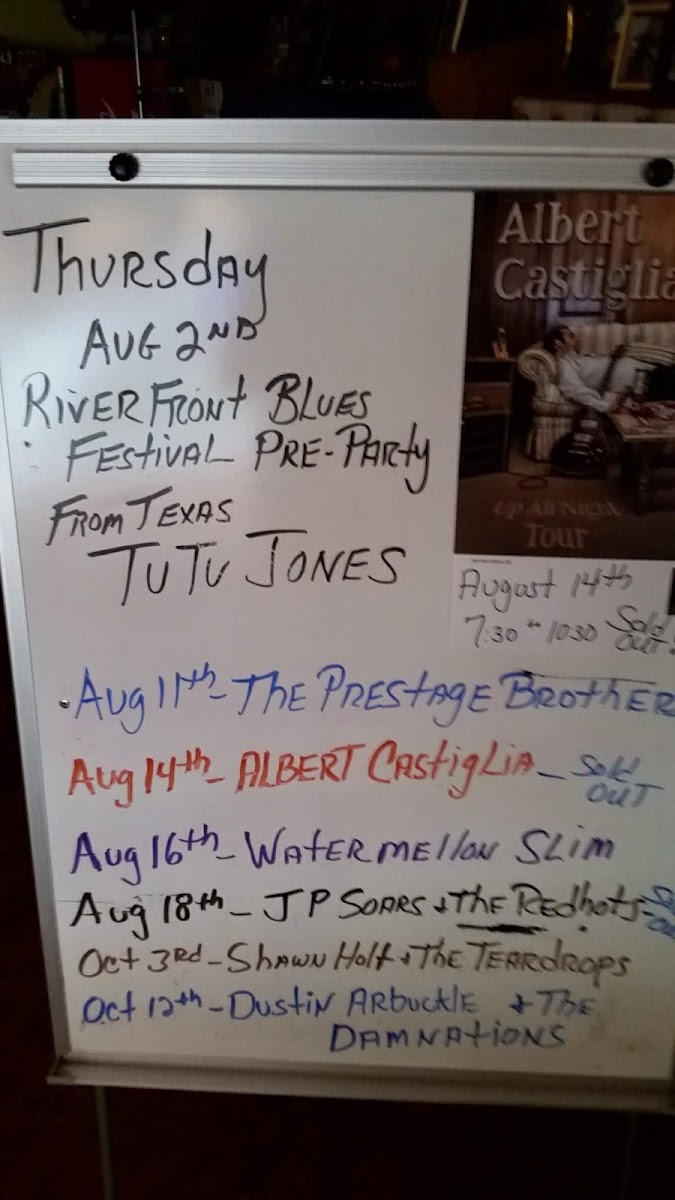 Thursday
Aug 2nd
RiverFront Blues
Festival Pre-Party
From Texas
TuTu Jones
Albert
Castiglia
Up All Night
Tour
August 14th
7:30 - 10:30 Sold
out!
Aug 11th - The Prestage Brother
Aug 14th - Albert Castiglia - Sold
out
Aug 16th - Watermellon Slim
Aug 18th - JP Soars + The Redhots -
Oct 3rd - Shawn Holt + The Teardrops
Oct 12th - Dustin Arbuckle + The
Damnations